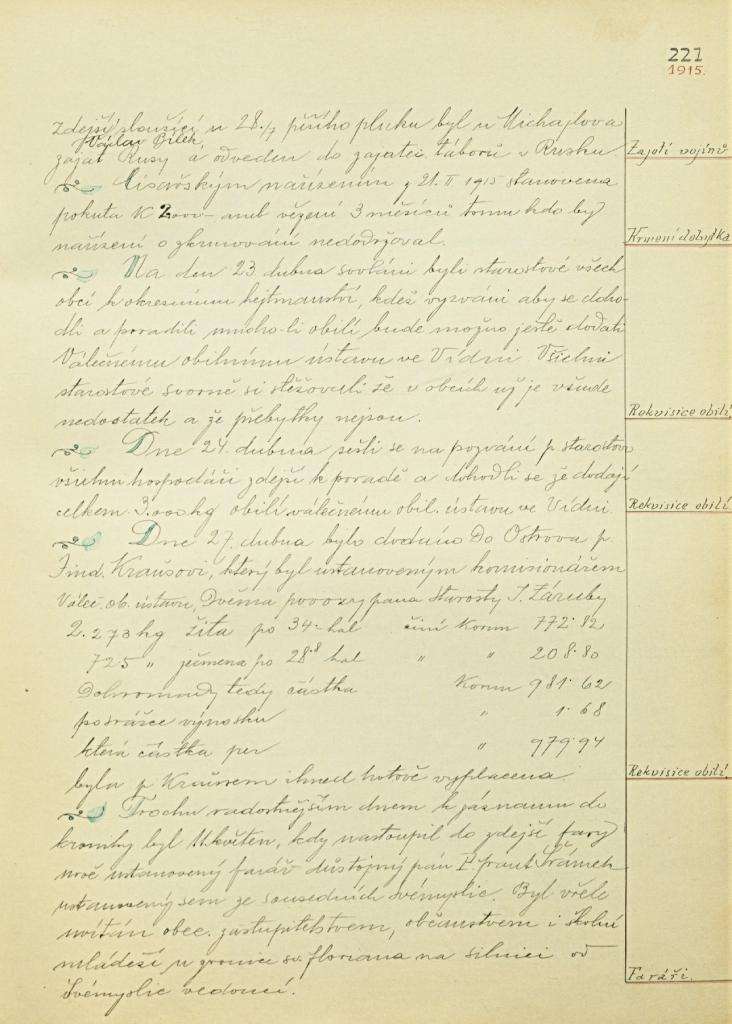 221
1915.
zdejší sloužící u 28./ pěšího pluku byl u Michajlova
Václav Bílek,
zajat Rusy a odveden do zajatec. táborů v Rusku.
Zajatí vojínů
Císařským nařízením z 21. II 1915 stanovena
pokuta K 2000– aneb vězení 3 měsíců tomu kdo by
nařízení o zkrmování nedodržoval.
Krmení dobytka
Na den 23. dubna svoláni byli starostové všech
obcí k okresnímu hejtmanství, kdež vyzváni aby se doho-
dli a poradili mnoho-li obilí bude možno ještě dodati
Válečnému obilnímu ústavu ve Vídni. Všichni
starostové svorně si stěžovali že v obcích už je všude
nedostatek a že přebytky nejsou.
Rekvisice obilí.
Dne 24. dubna sešli se na pozvání p. starosty
všichni hospodáři zdejší k poradě a dohodli se že dodají
celkem 3.000 kg obilí válečnému obil. ústavu ve Vídni.
Rekvisice obilí.
Dne 27. dubna bylo dodáno do Ostrova p.
Jind. Krausovi, který byl ustanoveným komisionářem
Váleč. ob. ústavu, Dvěma povozy pana starosty J. Záruby
2.273 kg žita po 34·– hal činí Korun 772·82
725 „ ječmena po 28·8 hal „ „ 208·80
Dohromady tedy částka Korun 981·62
po srážce výnosku „ 1·68
která částka per „ 979·94
byla p. Krausem ihned hotově vyplacena.
Rekvisice obilí.
Trochu radostnějším dnem k záznamu do
kroniky byl 11. květen, kdy nastoupil do zdejší fary
nově ustanovený farář důstojný pán P. Frant Šrámek
ustanovený sem ze sousedních Svémyslic. Byl vřele
uvítán obec. zastupitelstvem, občanstvem i školní
mládeží u zvonice sv. Floriana na silnici od
Svémyslic vedoucí.
Faráři.